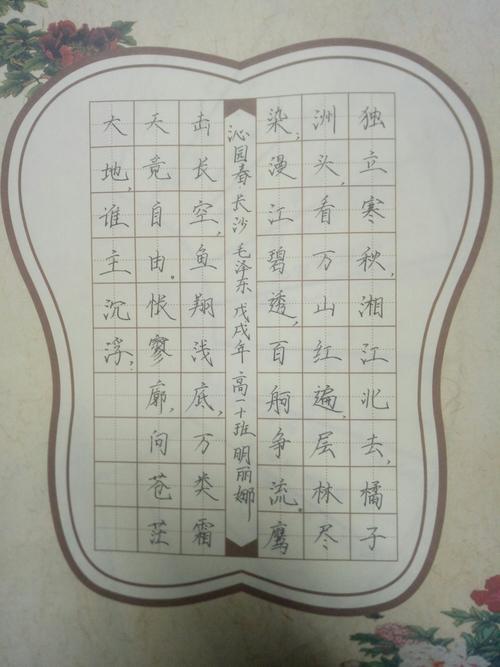 独立寒秋,湘江北去,橘子
洲头,看万山红遍,层林尽
染,漫江碧透,百舸争流。鹰
沁园春·长沙 毛泽东 戊戌年 高二十班 明丽娜
击长空,鱼翔浅底,万类霜
天竟自由。怅寥廓,问苍茫
大地,谁主沉浮,